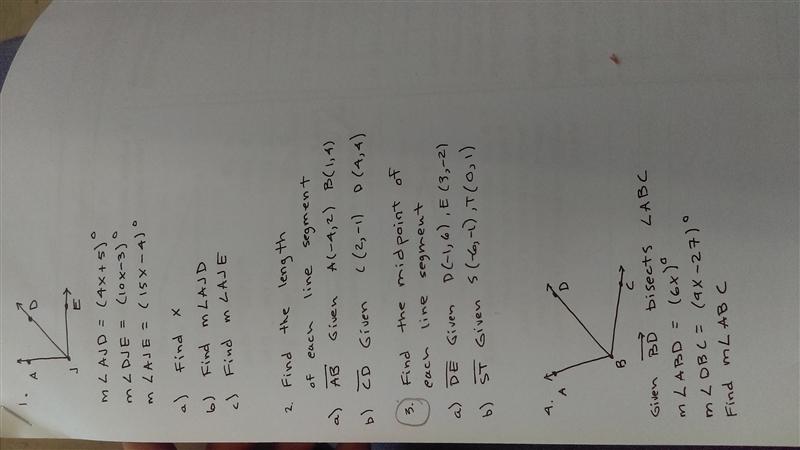 1.
A
D
J
E
m∠AJD = (4x+5)°
m∠DJE = (10x-3)°
m∠AJE = (15x-4)°
a) Find x
b) Find m∠AJD
c) Find m∠AJE
2. Find the length
of each line segment
a) A̅B̅ Given A(-4,2) B(1,4)
b) C̅D̅ Given C(2,-1) D(4,4)
3. Find the midpoint of
each line segment
a) D̅E̅ Given D(-1,6), E(3,-2)
b) S̅T̅ Given S(-6,-1), T(0,1)
4.
A
D
B
C
Given B⃗D⃗ bisects ∠ABC
m∠ABD = (6x)°
m∠DBC = (9x-27)°
Find m∠ABC